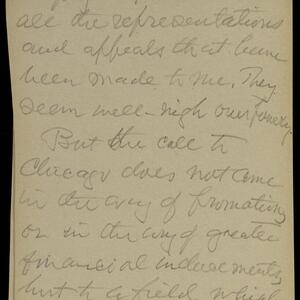 all the representations
and appeals that have
been made to me. They
seem well-nigh overpowering
But the call to
Chicago does not come
in the way of promotion,
or in the way of greater
financial inducements,
but to a field which